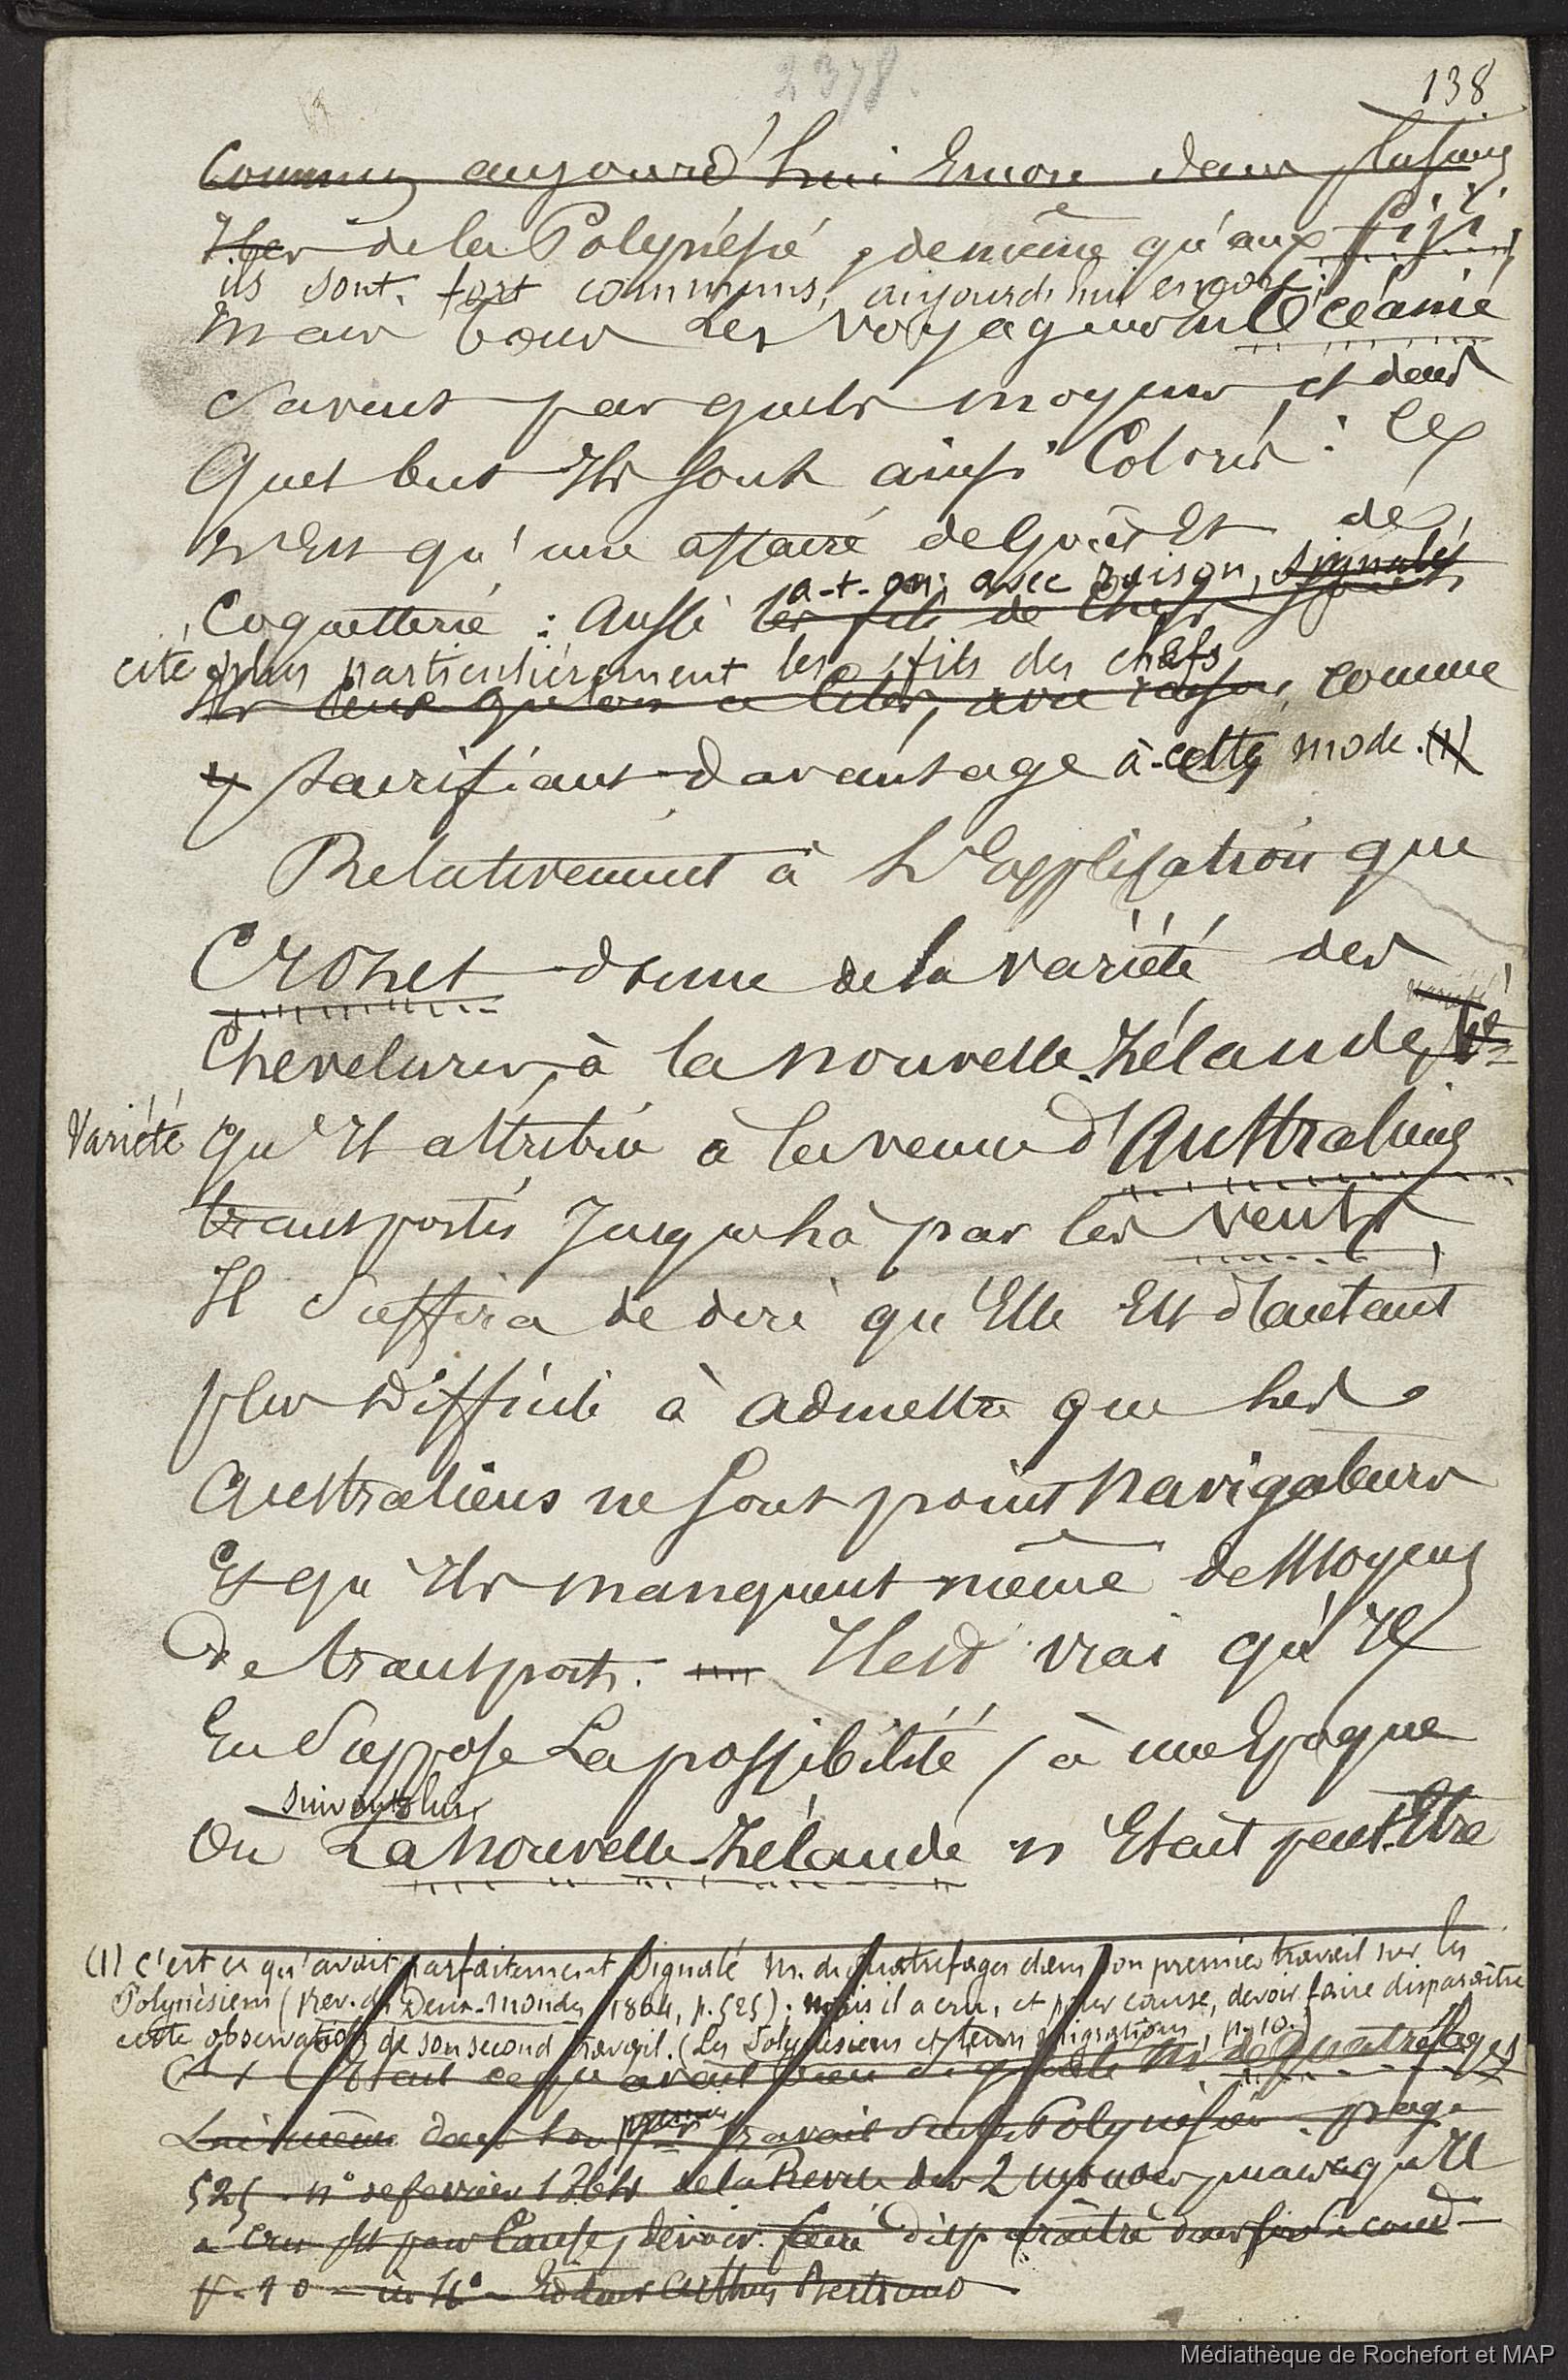 2378.
138
Communs aujourd'hui Encore dans plusieurs
Iles de la Polynésie, de même qu'aux fiji,
ils sont fort communs, aujourd'hui encore;
mais tous les voyageurs en Océanie
Savent par quels moyens et dans
Quel but Ils sont ainsi Colorés : Ce
n'Est qu'une affaire de Goût Et de
a-t-on, avec raison, signalés
Coquetterie : Aussi les fils de Chefs
cité plus particulièrement les fils des chefs
Ceux qu'on a Cités, avec raison, comme
y sacrifiant davantage à cette mode. (1)
Relativement à L'Explication que
Crozet donne de la variété des
Chevelures, à la nouvelle-Zélande,
Variété qu'Il attribue à la venue d'Australiens
transportés Jusque là par les vents,
Il Suffira de dire qu'Elle Est d'autant
plus Difficile à admettre que les
Australiens ne sont point navigateurs
Et qu'Ils manquent même de Moyens
De transport. Il est vrai qu'Il
En Suppose La possibilité, à une Epoque
suivant lui,
Où La Nouvelle-Zélande n'Etait peut-Etre
(1) C'est ce qu'avait parfaitement signalé M. de Quatrefages dans son premier travail sur les
Polynésiens (Rev. des Deux-Mondes, 1864, p. 525); mais il a cru, et pour cause, devoir faire disparaître
cette observation de son second travail. (Les Polynésiens et leurs migrations, p. 10.)
C'Etait ce qu'avait bien signalé Mr de Quatrefages
Lui même dans son premier travail sur les Polynésiens page
525 - n° de fevrier 1864 de la Revue des 2 mondes, mais qu'Il
a cru Et pour Cause, devoir faire disparaître dans son second -
p. 10 - in 4° - Editeur Arthus Bertrand
Médiathèque de Rochefort et MAP